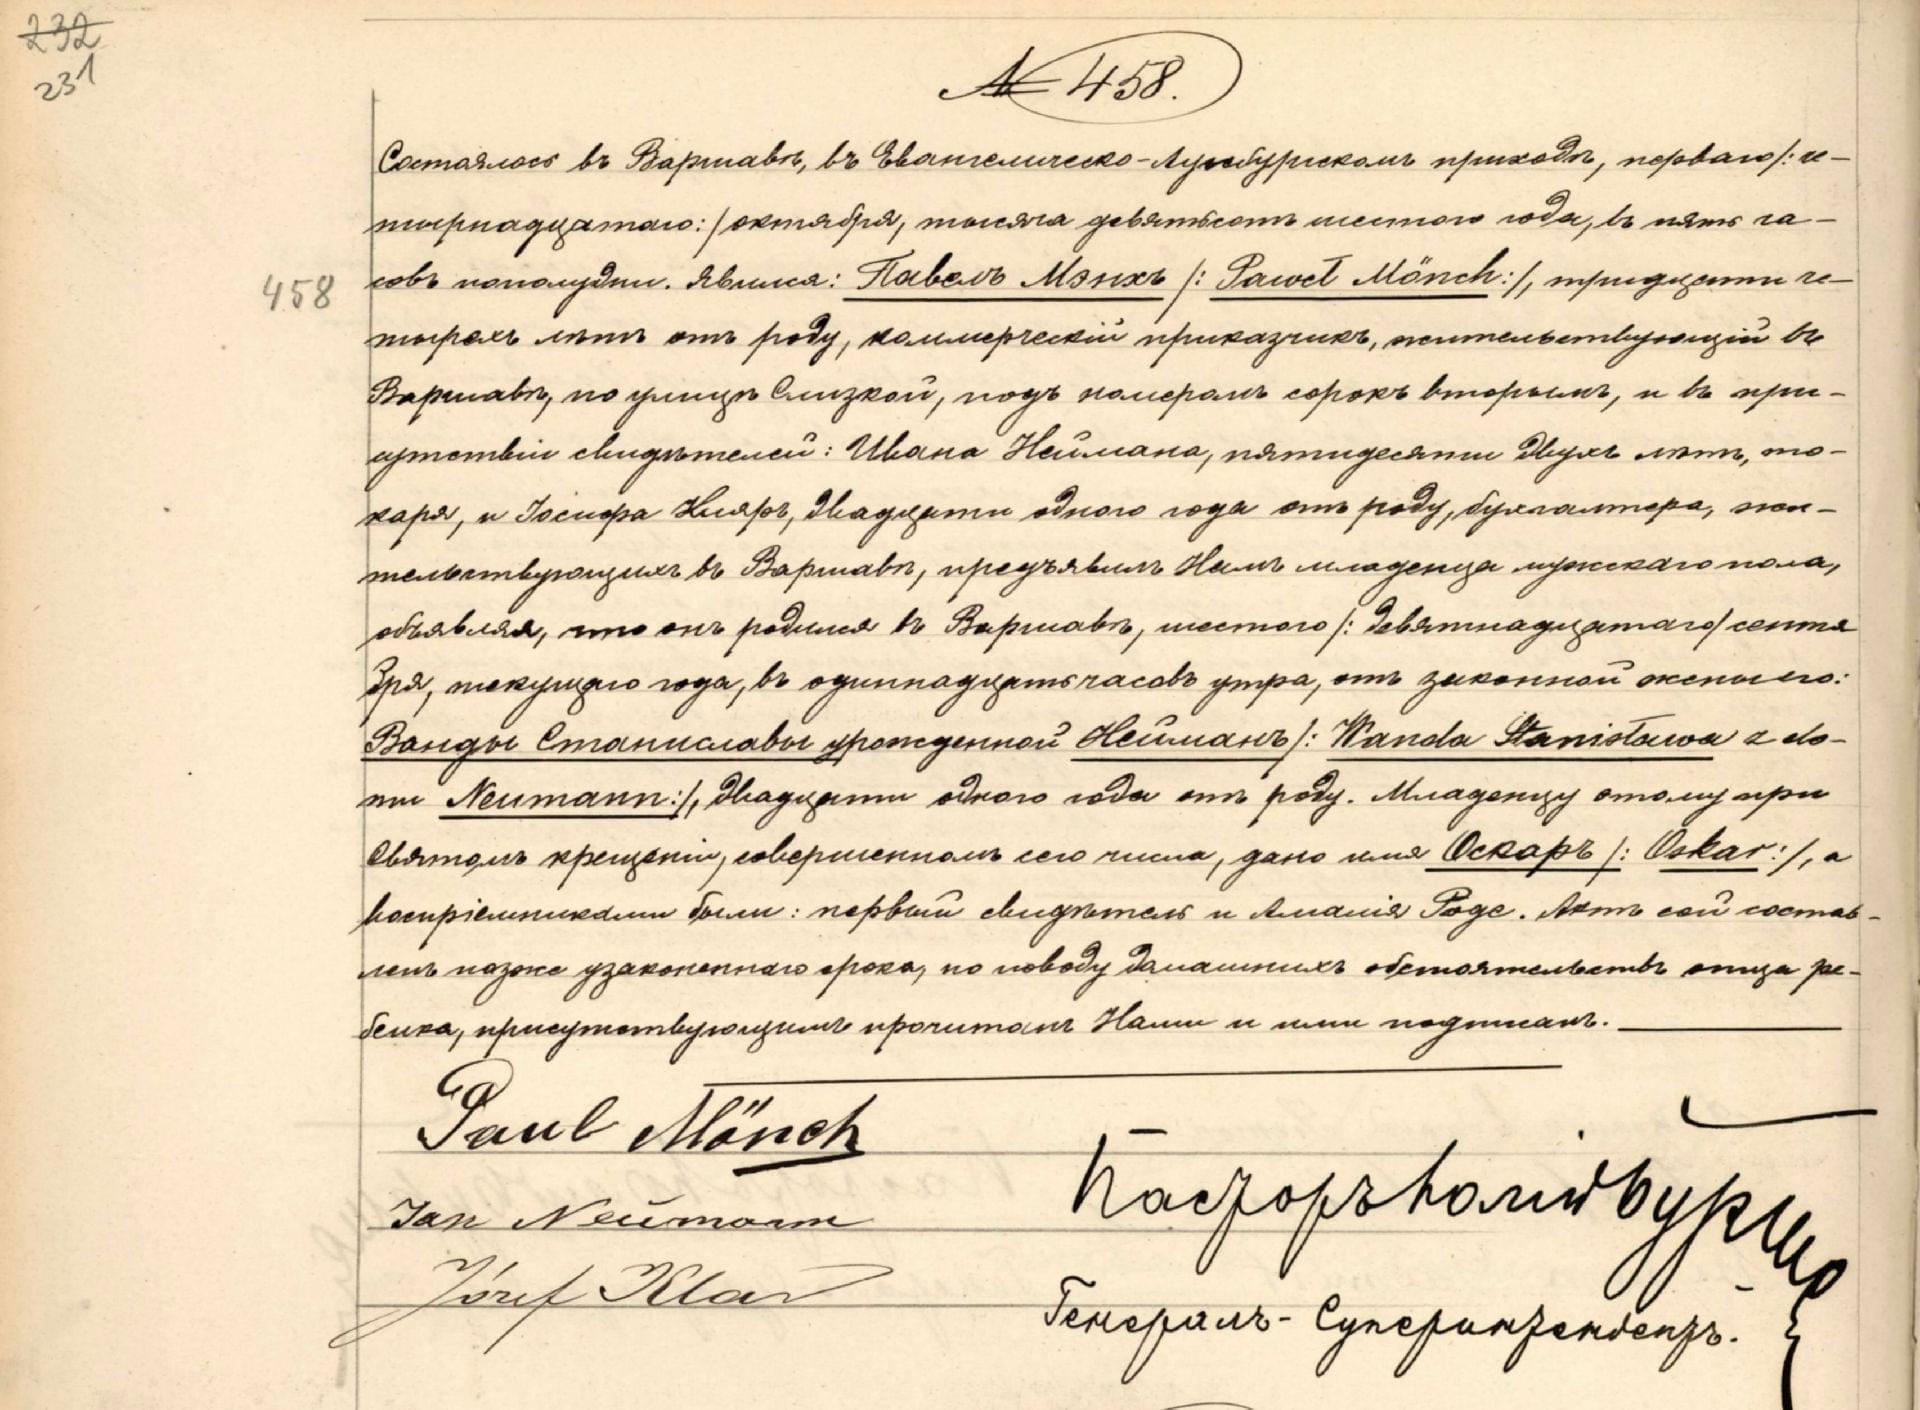 232
231
№ 458.
Состоялось въ Варшавѣ, въ Евангелическо-Аугсбургскомъ приходѣ, перваго /: че-
тырнадцатаго :/ октября, тысяча девятьсотъ шестого года, въ пять ча-
458
совъ пополудни. Явился: Павелъ Мэнхъ /: Paweł Mönch :/, тридцати че-
тырехъ лѣтъ отъ роду, коммерческій приказчикъ, жительствующій въ
Варшавѣ, по улицѣ Слизкой, подъ номеромъ сорокъ вторымъ, и въ при-
сутствіи свидѣтелей: Ивана Неймана, пятидесяти двухъ лѣтъ, то-
каря, и Іосифа Кляръ, двадцати одного года отъ роду, бухгалтера, жи-
тельствующихъ въ Варшавѣ, предъявилъ Намъ младенца мужскаго пола,
объявляя, что онъ родился въ Варшавѣ, шестого /: девятнадцатаго / сентя
бря, текущаго года, въ одиннадцать часовъ утра, отъ законной жены его:
Ванды Станиславы урожденной Нейманъ /: Wanda Stanisława z do-
mu Neumann :/, двадцати одного года отъ роду. Младенцу этому при
Святомъ крещеніи, совершенномъ сего числа, дано имя Оскаръ /: Oskar :/, а
воспріемниками были: первый свидѣтель и Амалія Роде. Актъ сей состав-
ленъ позже узаконеннаго срока, по поводу домашнихъ обстоятельствъ отца ре-
бенка, присутствующимъ прочитанъ Нами и ими подписанъ.
Paul Mönch
Jan Neumann
Пасторъ
Józef Klar
Генералъ-Суперинтендентъ.